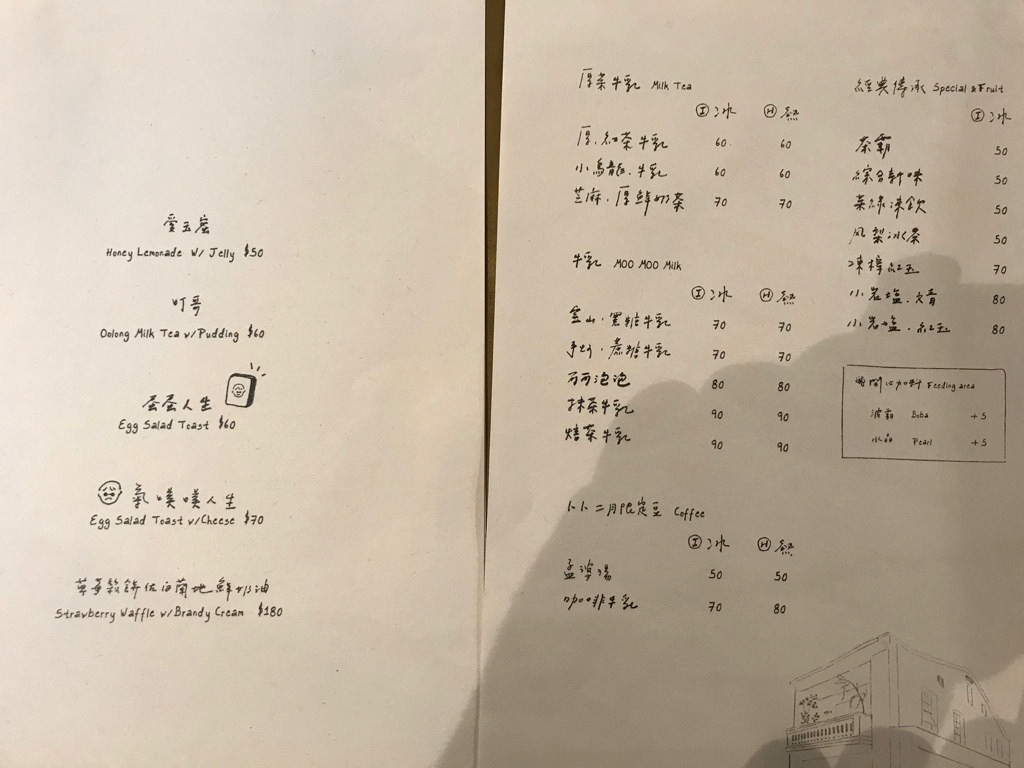 愛玉
Honey Lemonade w/ Jelly $50
叮哥
Oolong Milk Tea w/Pudding $60
蛋蛋人生
Egg Salad Toast $60
氣噗噗人生
Egg Salad Toast w/Cheese $70
草莓鬆餅佐白蘭地鮮奶油
Strawberry Waffle w/Brandy Cream $180
厚茶牛乳 Milk Tea
I 冰 H 熱
厚.紅茶牛乳 60. 60
小烏龍.牛乳 60 60
芝麻.厚鮮奶茶 70 70
牛乳 MOO MOO Milk
I 冰 H 熱
釜山.黑糖牛乳 70 70
手炒.蔗糖牛乳 70 70
可可泡泡 80 80
抹茶牛乳 90 90
焙茶牛乳 90 90
卜卜二月限定豆 Coffee
I 冰 H 熱
孟婆湯 50 50
咖啡牛乳 70 80
經典傳承 Special & Fruit
I 冰
茶霸 50
綜合軒味 50
菜綠凍飲 50
鳳梨冰茶 50
凍檸紅玉 70
小岩塩.文青 80
小岩塩.紅玉 80
加料 Feeding area
波霸 Boba +5
水晶 Pearl +5